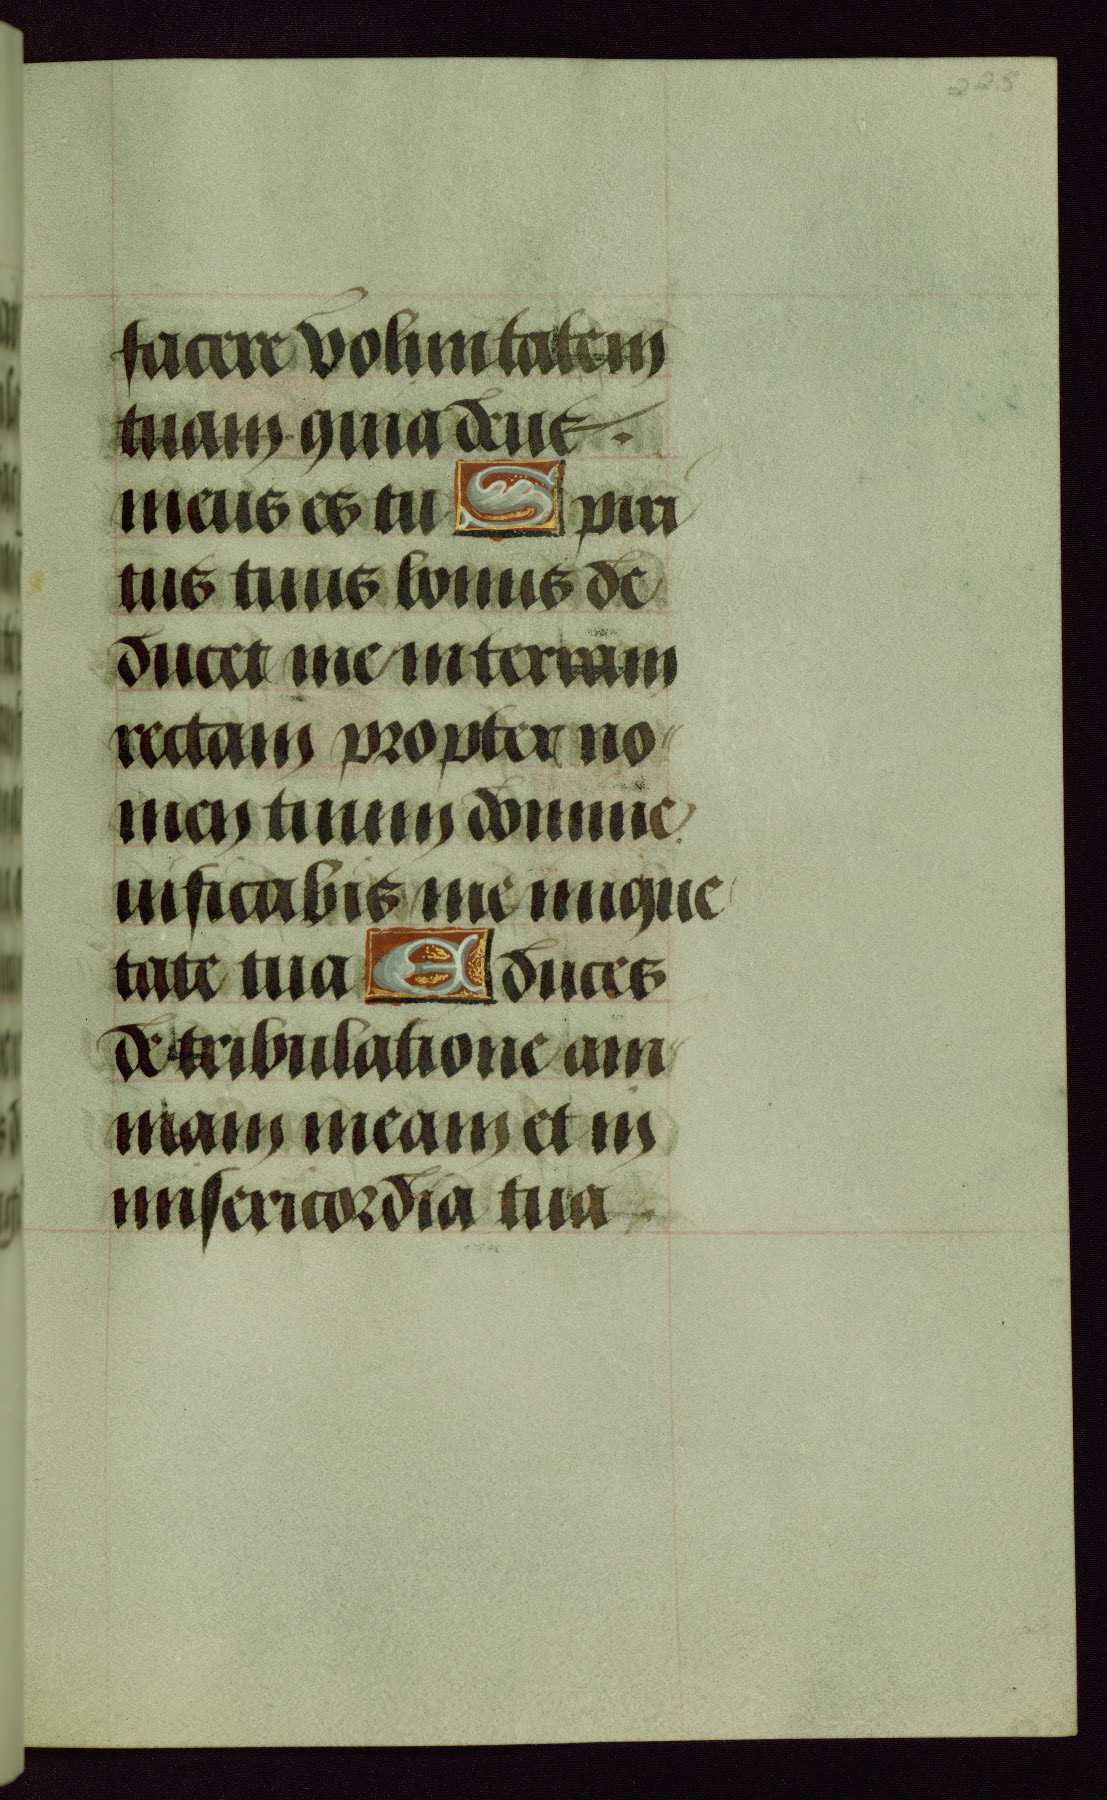 225
facere voluntatem
tuam quia deus.
meus es tu Spiri
tus tuus bonus de
ducet me in terram
rectam propter no
men tuum domine.
uificabis me in eque
tate tua Educes
de tribulatione ani
mam meam et in
misericordia tua